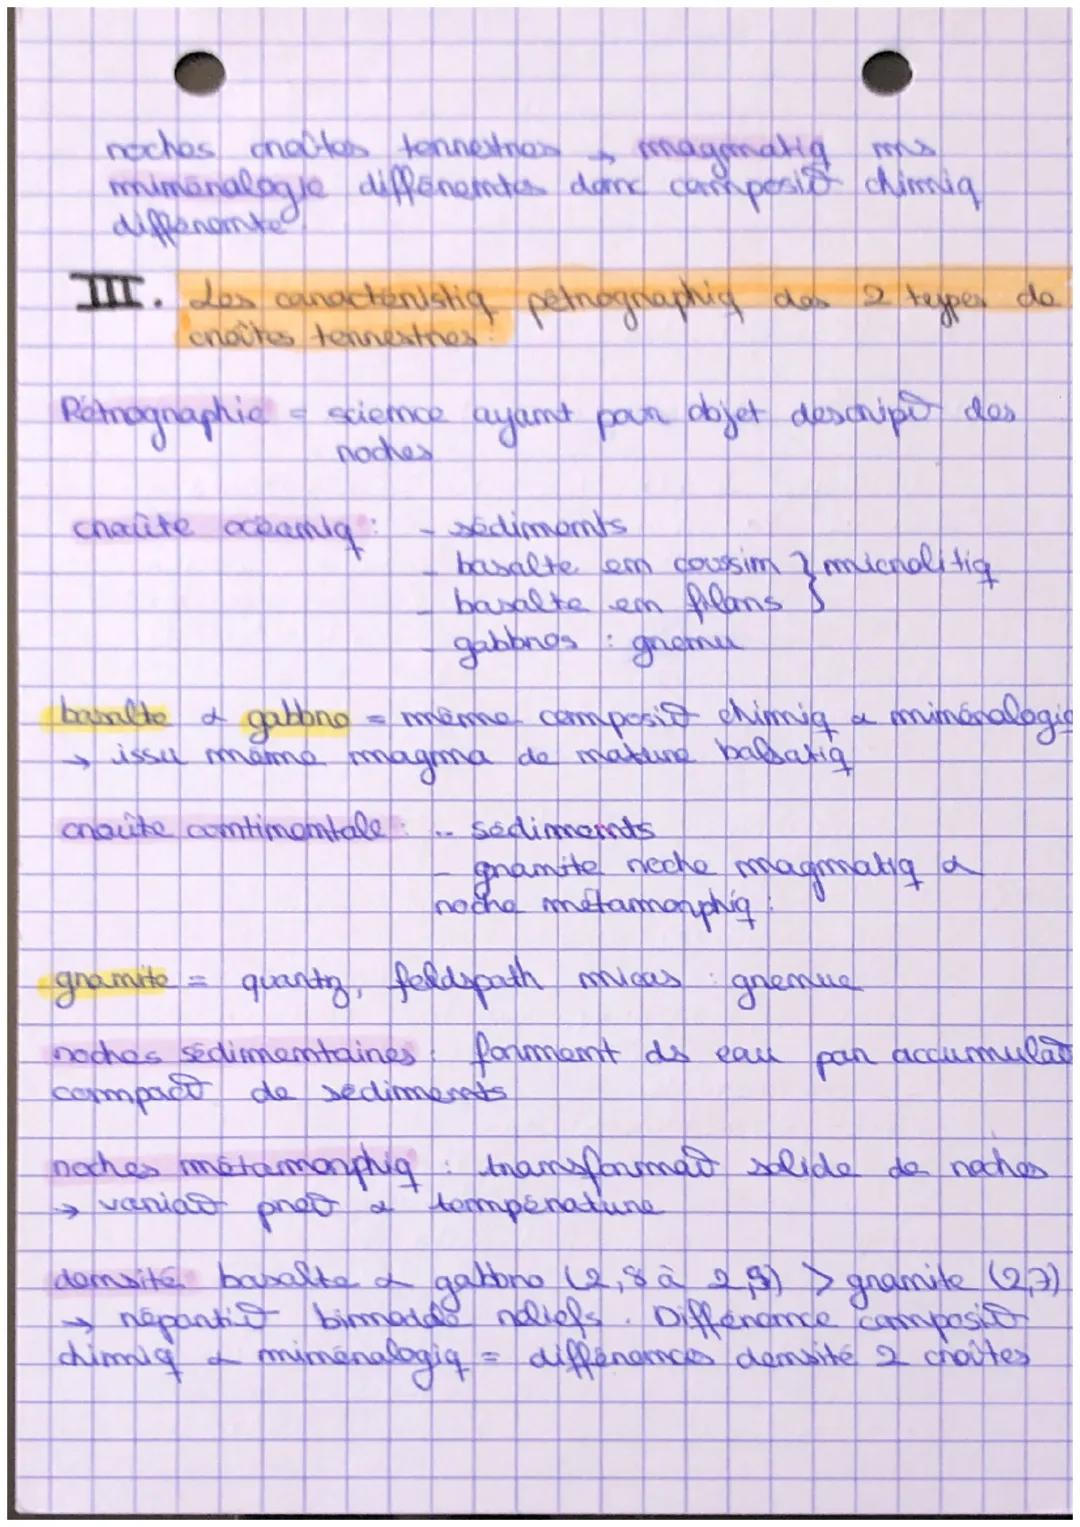 roches croûtes terrestres → magmatiq ms
minéralogie différentes donc composit° chimiq
différente.
III. Les caractéristiq pétrographiq des 2 types de
croûtes terrestres :
Pétrographie = science ayant par objet descript° des
roches
croûte océaniq : - sédiments
- basalte en coussin } microlitiq
- basalte en filons
- gabbros : grenu
basalte & gabbro = même composit° chimiq & minéralogiq
→ issu même magma de nature balsatiq
croûte continentale : - sédiments
- granite roche magmatiq &
roche métamorphiq.
granite = quartz, feldspath micas : grenue
roches sédimentaires : forment ds eau par accumulat°
compact° de sédiments
roches métamorphiq : transformat° solide de roches
→ variat° press° & température
densité basalte & gabbro (2,8 à 2,9) > granite (2,7)
→ répartit° bimodale reliefs. Différence composit°
chimiq & minéralogiq = différences densité 2 croûtes